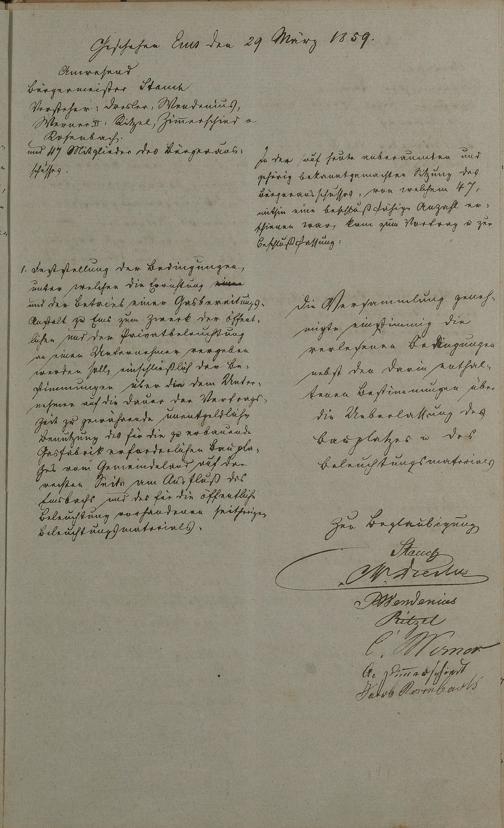 Geschehen Ems den 29 März 1859.
Anwesend
Bürgermeister Stamt
Vorsteher: Dresler, Wendenius,
Werner II. Ritzel, Zimmerschied u
Rosenbach.
und 47 Mitglieder des Bürgeraus-
schusses.
In der auf heute anberaumten und
gehörig bekanntgemachten Sitzung des
Bürgerausschusses, von welchem 47,
mithin eine beschlußfähige Anzahl er-
schienen war, kam zum Vortrag u zur
Beschlußfassung:
1. Feststellung der Bedingungen,
unter welchen die Errichtung
und der Betrieb einer Gasbereitungs-
Anstalt zu Ems zum Zweck der öffent-
lichen und der Privatbeleuchtung
an einen Unternehmer vergeben
werden soll, einschließlich der Be-
stimmungen über die dem Unter-
nehmer auf die Dauer der Vertrags-
zeit zu gewährende unentgeldliche
Benutzung des für die zu erbauende
Gasfabrik erforderlichen Baupla-
tzes vom Gemeindeland auf der
rechten Seite am Ausfluß des
Emsbachs und des für die öffentliche
Beleuchtung vorhandenen seitherigen
Beleuchtungsmaterials.
Die Versammlung geneh-
migte einstimmig die
verlesenen Bedingungen
nebst den darin enthal-
tenen Bestimmungen über
die Ueberlassung des
Bauplatzes u des
Beleuchtungsmaterials
Zur Beglaubigung
W. Dresler
Wendenius
Ritzel
C. Werner
A. Zimmerschied
Jakob Rosenbach